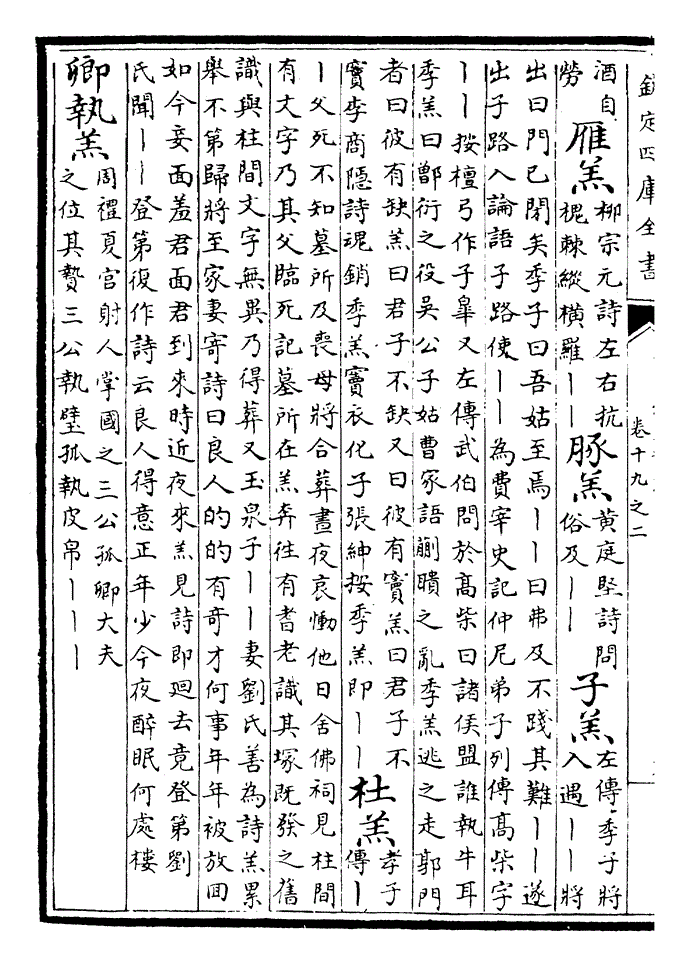 欽定四庫全書
卷十九之二
酒自
勞
雁羔
柳宗元詩左右抗
槐棘縱橫羅丨丨
豚羔
黃庭堅詩問
俗及丨丨
子羔
左傳季子將
入遇丨丨將
出曰門已閉矣季子曰吾姑至焉丨丨曰弗及不踐其難丨丨遂
出子路入論語子路使丨丨為費宰史記仲尼弟子列傳髙柴字
丨丨按檀弓作子臯又左傳武伯問於髙柴曰諸侯盟誰執牛耳
季羔曰鄫衍之役吳公子姑曹家語蒯聵之亂季羔逃之走郭門
者曰彼有缺羔曰君子不缺又曰彼有竇羔曰君子不
竇李商隱詩魂銷季羔竇衣化子張紳按季羔即丨丨
杜羔
孝子
傳丨
丨父死不知墓所及喪母將合葬晝夜哀慟他日舍佛祠見柱間
有文字乃其父臨死記墓所在羔奔往有耆老識其塚既發之舊
識與柱間文字無異乃得葬又玉泉子丨丨妻劉氏善為詩羔累
舉不第歸將至家妻寄詩曰良人的的有奇才何事年年被放囬
如今妾面羞君面君到來時近夜來羔見詩即迴去竟登第劉
氏聞丨丨登第復作詩云良人得意正年少今夜醉眠何處樓
卿執羔
周禮夏官射人掌國之三公孤卿大夫
之位其贄三公執璧孤執皮帛丨丨丨